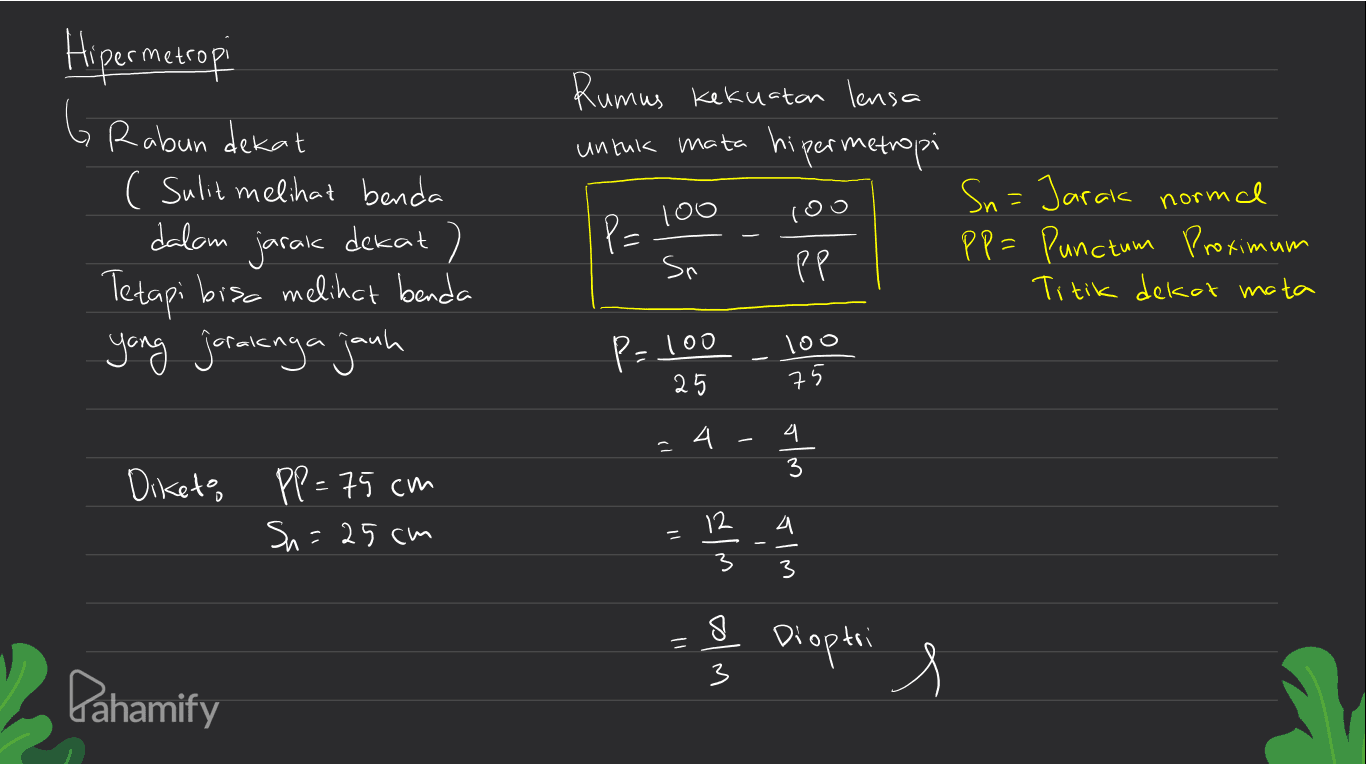 Hipermetropi
↳ Rabun dekat
( Sulit melihat benda
dalam jarak dekat )
Tetapi bisa melihat benda
yang jaraknya jauh
Diket: PP = 75 cm
Sn = 25 cm
Rumus kekuatan lensa
untuk mata hipermetropi
P = 100/Sn - 100/PP
Sn = Jarak normal
PP = Punctum Proximum
Titik dekat mata
P = 100/25 - 100/75
= 4 - 4/3
= 12/3 - 4/3
= 8/3 Dioptri
Pahamify